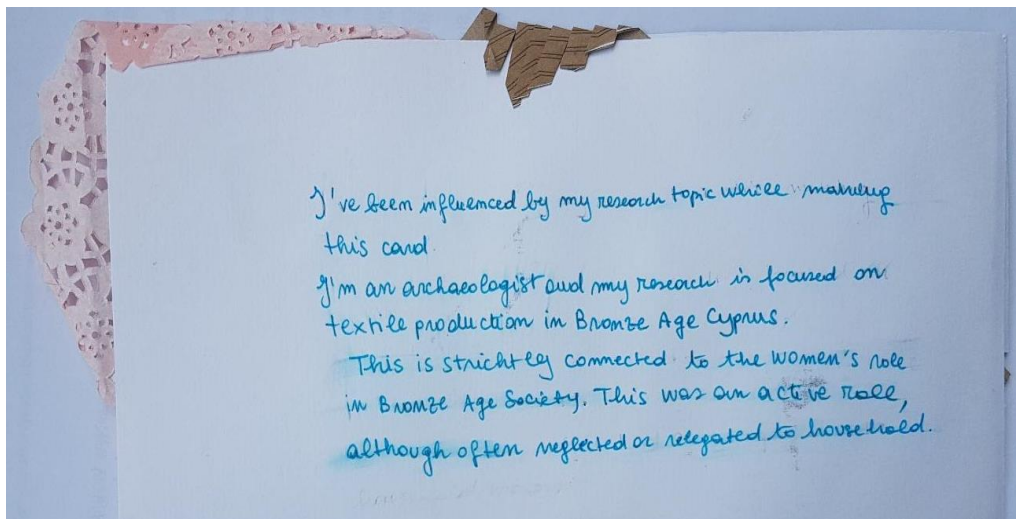 I've been influenced by my research topic while making
this card.
I'm an archaeologist and my research is focused on
textile production in Bronze Age Cyprus.
This is strichtly connected to the women's role
in Bronze Age Society. This was an active role,
although often neglected or relegated to household.